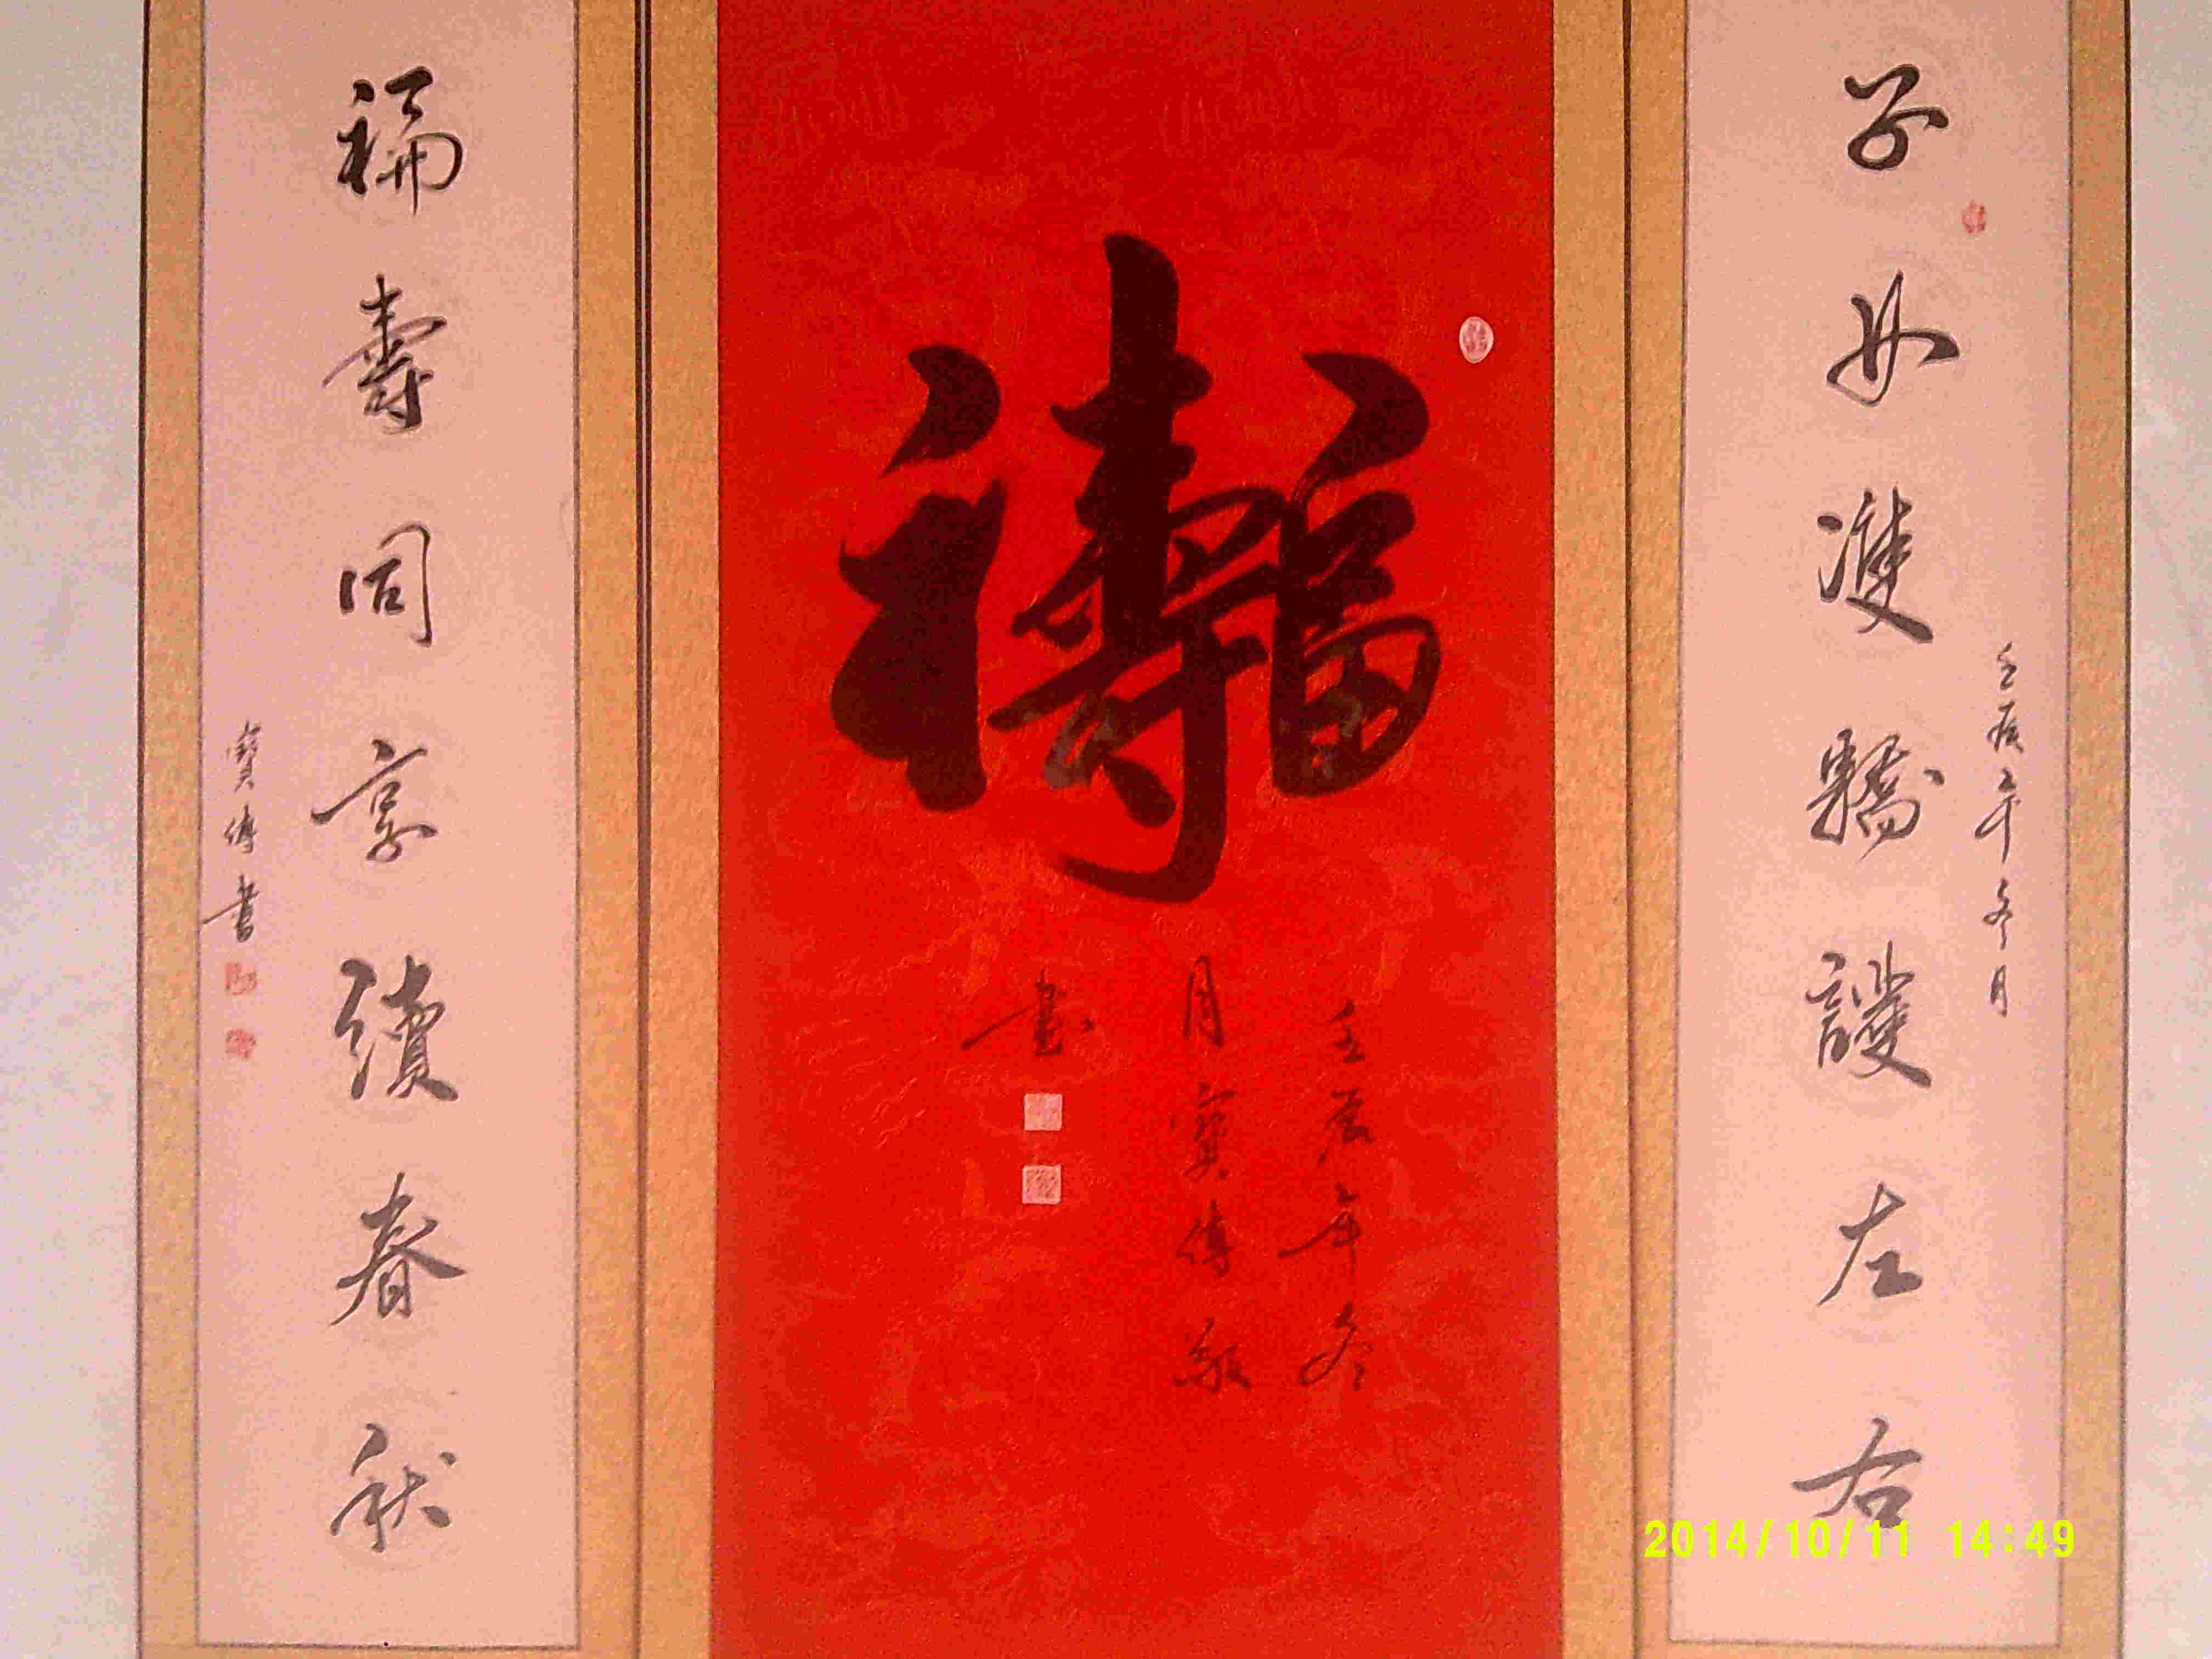 子女雙轎護左右
壬辰年冬月
福壽
壬辰年冬
月寶傳敬
書
福壽同享續春秋
寶傳書
2014/10/11 14:49